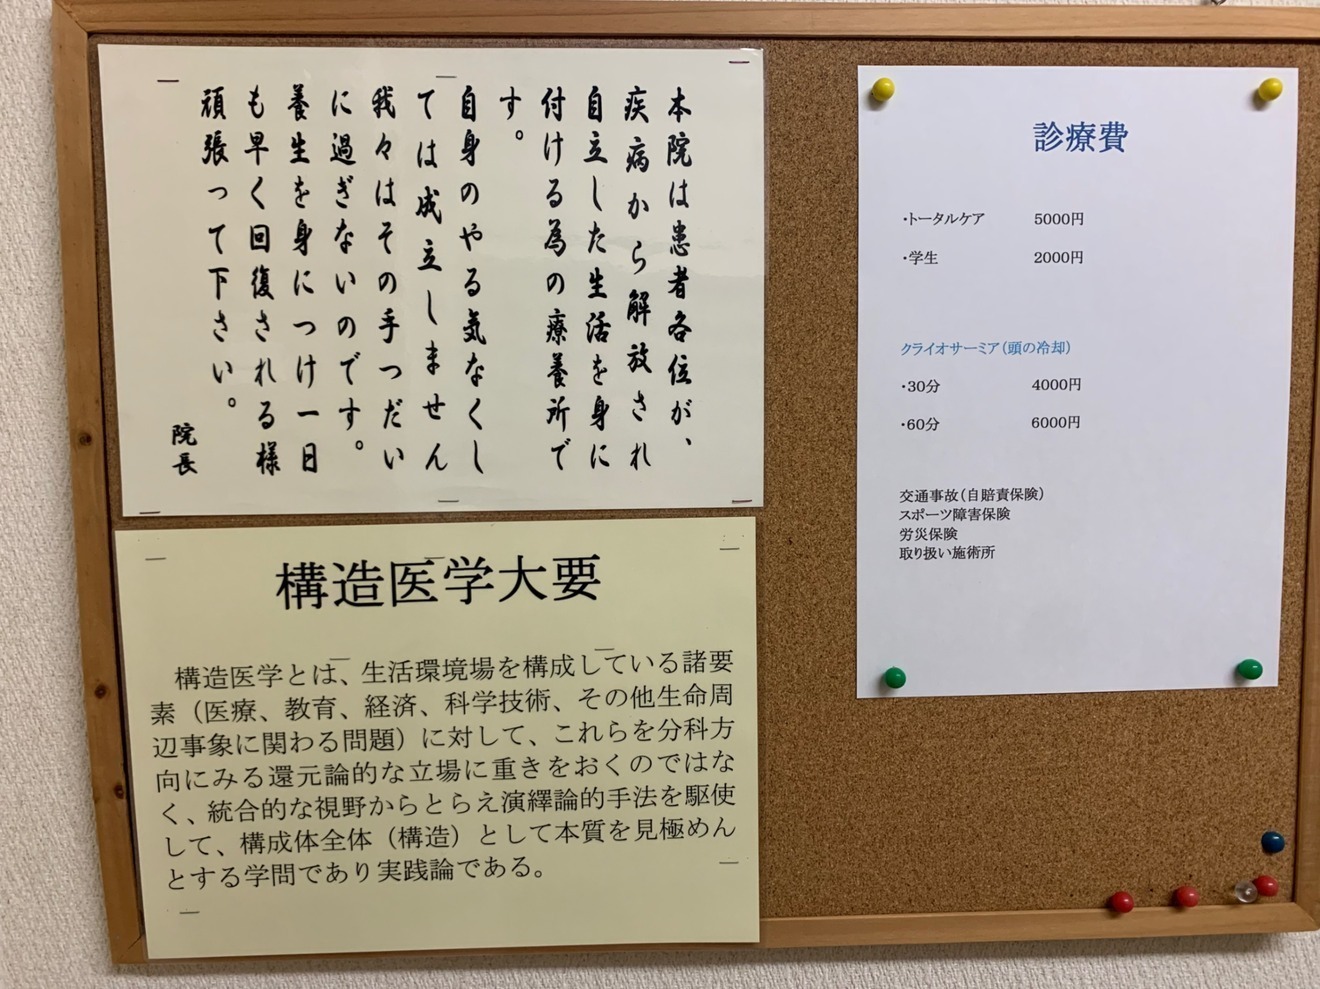 本院は患者各位が、
疾病から解放され
自立した生活を身に
付ける為の療養所で
す。
自身のやる気なくし
ては成立しません
我々はその手つだい
に過ぎないのです。
養生を身につけ一日
も早く回復される様
頑張って下さい。
院長
構造医学大要
構造医学とは、生活環境場を構成している諸要
素（医療、教育、経済、科学技術、その他生命周
辺事象に関わる問題）に対して、これらを分科方
向にみる還元論的な立場に重きをおくのではな
く、統合的な視野からとらえ演繹論的手法を駆使
して、構成体全体（構造）として本質を見極めん
とする学問であり実践論である。
診療費
・トータルケア 5000円
・学生 2000円
クライオサーミア（頭の冷却）
・30分 4000円
・60分 6000円
交通事故（自賠責保険）
スポーツ障害保険
労災保険
取り扱い施術所